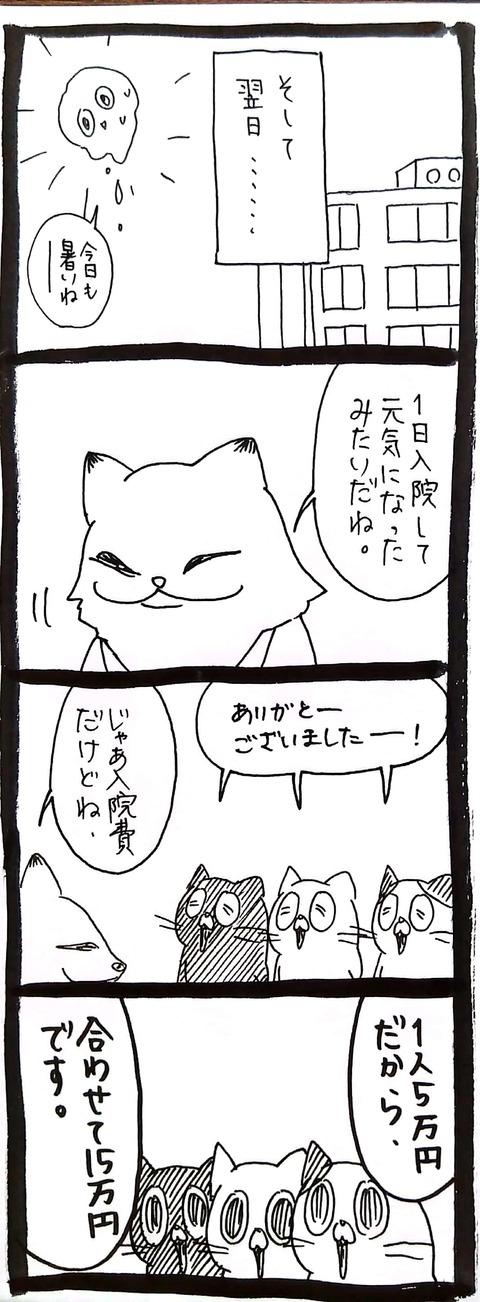 そして
翌日………
今日も
暑いね
1日入院して
元気になった
みたいだね。
ありがとー
ございましたー！
じゃあ入院費
だけどね、
1人5万円
だから、
合わせて15万円
です。